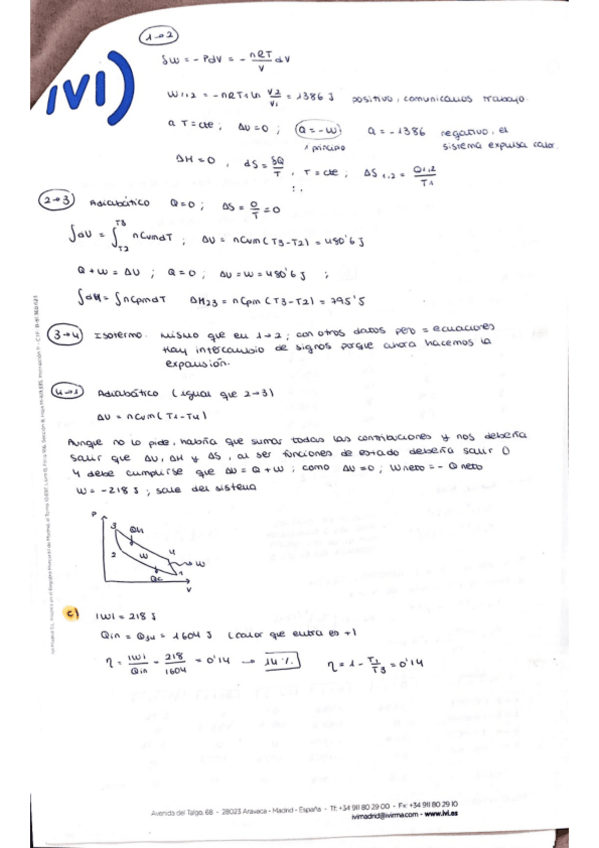 ivi)
1→2
δW = - PdV = - nRT/V dV
W1,2 = - nRT1 ln V2/V1 = 1386 J positivo, comunicamos trabajo.
a T = cte, ΔU = 0 ; Q = -W) Q = -1386 negativo, el
1 principio sistema expulsa calor.
ΔH = 0 , dS = δQ/T , T = cte ; ΔS1,2 = Q1,2/T1
2→3 Adiabático Q = 0 ; ΔS = 0/T = 0
∫dU = ∫T2 T3 nCvmdT ; ΔU = nCvm(T3-T2) = 480'6 J
Q + W = ΔU ; Q = 0 ; ΔU = W = 480'6 J ;
∫dH = ∫nCpmdT ΔH23 = nCpm (T3-T2) = 795'5
3→4 Isotermo. Mismo que en 1→2, con otros datos pero = ecuaciones
Hay intercambio de signos porque ahora hacemos la
expansión.
4→1 Adiabático (igual que 2→3)
ΔU = nCvm(T1-T4)
Aunque no lo pide, habría que sumar todas las contribuciones y nos debería
salir que ΔU, ΔH y ΔS, al ser funciones de estado debería salir 0
Y debe cumplirse que ΔU = Q + W ; como ΔU = 0 ; Wneto = - Qneto
W = -218 J ; sale del sistema
P
3 Q34
2 W 4 → W
Qc 1
V
c) |W| = 218 J
Qin = Q34 = 1604 J (calor que entra es +)
η = |W|/Qin = 218/1604 = 0'14 → 14 % η = 1 - T1/T3 = 0'14
Avenida del Talgo, 68 - 28023 Aravaca - Madrid - España - Tf: +34 911 80 29 00 - Fx: +34 911 80 29 10
ivimadrid@ivirma.com - www.ivi.es